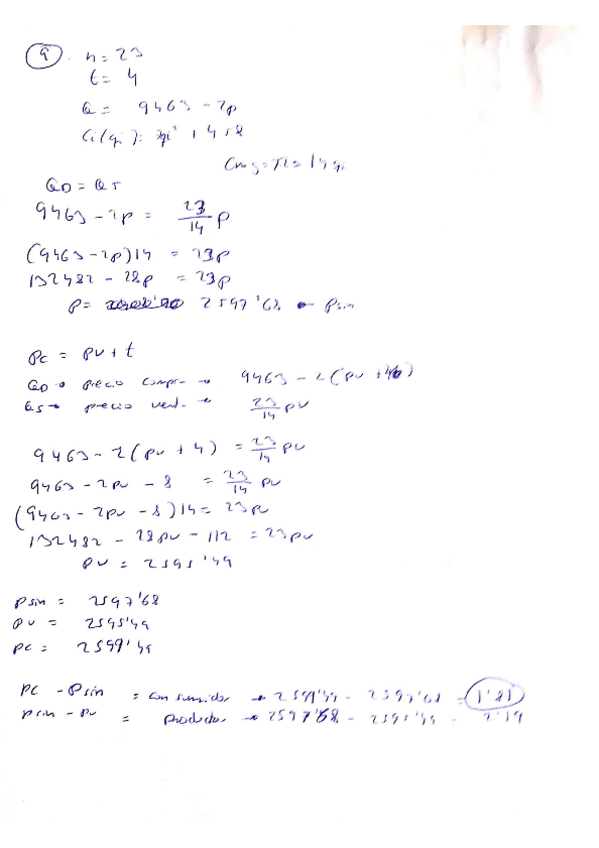 9. n = 23
t = 4
Q = 9463 - 2p
Ci(qi): 7qi² + 458
Cmg = p = 14qi
QD = QS
9463 - 2p = 23/14 p
(9463 - 2p)14 = 23p
132482 - 28p = 23p
p = 2597'68 psin
pc = pv + t
QD → precio compr. → 9463 - 2(pv + 4)
QS → precio vent. → 23/14 pv
9463 - 2(pv + 4) = 23/14 pv
9463 - 2pv - 8 = 23/14 pv
(9463 - 2pv - 8)14 = 23pv
132482 - 28pv - 112 = 23pv
pv = 2595'49
psin = 2597'68
pv = 2595'49
pc = 2599'49
pc - psin = consumidor → 2599'49 - 2597'68 = 1'81
psin - pv = productor → 2597'68 - 2595'49 = 2'19